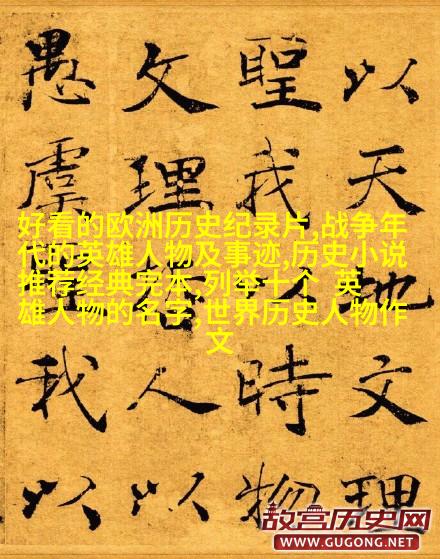 以天地文理
聖我以時物
文理哲人以
愚虞聖我以
好看的欧洲历史纪录片,战争年
代的英雄人物及事迹,历史小说
推荐经典完本,列举十个 英
雄人物的名字,世界历史人物作
文
故宫历史网
WWW.GUGONG.NET